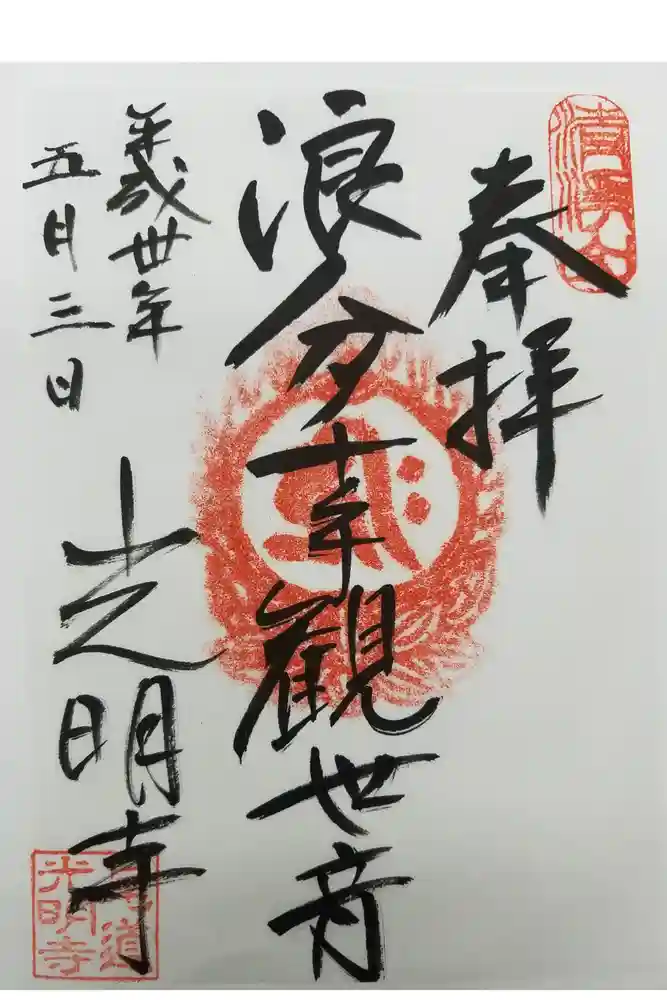 奉拝
浪分千手觀世音
平成卅年
五月三日
光明寺
尾道
光明寺